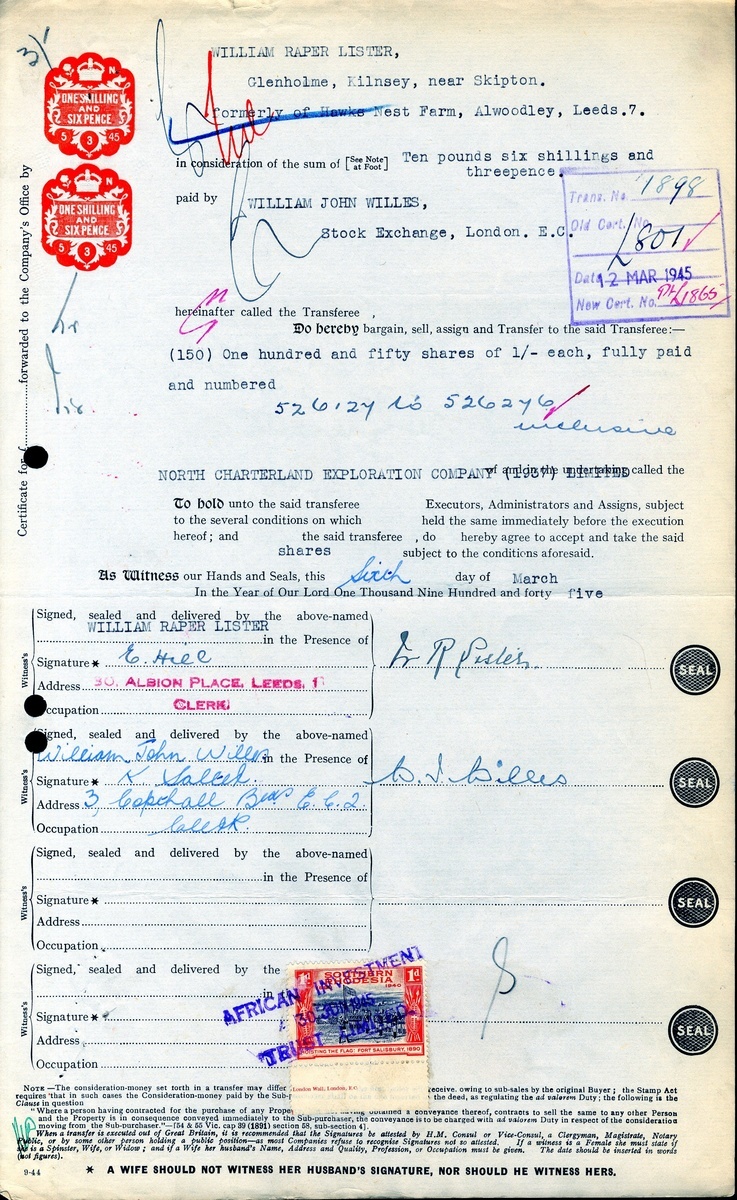 3/
WILLIAM RAPER LISTER,
Glenholme, Kilnsey, near Skipton.
formerly of Hawks Nest Farm, Alwoodley, Leeds.7.
N
ONE SHILLING
AND
SIX PENCE
5 3 45
N
ONE SHILLING
AND
SIX PENCE
5 3 45
in consideration of the sum of [See Note at Foot] Ten pounds six shillings and
threepence.
paid by WILLIAM JOHN WILLES,
Stock Exchange, London. E.C.
Trans. No. 1898
Old Cert. No. L801
Date 12 MAR 1945
New Cert. No. PL/1865
hereinafter called the Transferee ,
Do hereby bargain, sell, assign and Transfer to the said Transferee:—
(150) One hundred and fifty shares of 1/- each, fully paid
and numbered
526127 to 526276
inclusive
Certificate for £ forwarded to the Company's Office by
of and in the undertaking called the
NORTH CHARTERLAND EXPLORATION COMPANY (1937) LIMITED
To hold unto the said transferee Executors, Administrators and Assigns, subject
to the several conditions on which held the same immediately before the execution
hereof; and the said transferee , do hereby agree to accept and take the said
shares subject to the conditions aforesaid.
As Witness our Hands and Seals, this Sixth day of March
In the Year of Our Lord One Thousand Nine Hundred and forty five
Signed, sealed and delivered by the above-named
WILLIAM RAPER LISTER
in the Presence of
Witness's
Signature * E. Hill
W R Lister
SEAL
Address 30, ALBION PLACE, LEEDS, 1
Occupation CLERK
Signed, sealed and delivered by the above-named
William John Willes in the Presence of
Witness's
Signature * K
W. J. Willes
SEAL
Address 3, Copthall Bdgs E.C.2.
Occupation Clerk
Signed, sealed and delivered by the above-named
in the Presence of
Witness's
Signature *
SEAL
Address
Occupation
Signed, sealed and delivered by the
in
Witness's
Signature *
SEAL
Address
Occupation
1d SOUTHERN RHODESIA 1d
1940
HOISTING THE FLAG: FORT SALISBURY, 1890
AFRICAN INVESTMENT
30 JUN 1945
TRUST LIMITED
London Wall, London, E.C.
NOTE—The consideration-money set forth in a transfer may differ receive, owing to sub-sales by the original Buyer; the Stamp Act
requires that in such cases the Consideration-money paid by the Sub- the deed, as regulating the ad valorem Duty; the following is the
Clause in question
"Where a person having contracted for the purchase of any Prope having obtained a conveyance thereof, contracts to sell the same to any other Person
and the Property is in consequence conveyed immediately to the Sub-purchaser, the conveyance is to be charged with ad valorem Duty in respect of the consideration
moving from the Sub-purchaser."—[54 & 55 Vic. cap 39 (1891) section 58, sub-section 4].
When a transfer is executed out of Great Britain, it is recommended that the Signatures be attested by H.M. Consul or Vice-Consul, a Clergyman, Magistrate, Notary
Public, or by some other person holding a public position—as most Companies refuse to recognise Signatures not so attested. If a witness is a Female she must state if
she is a Spinster, Wife, or Widow; and if a Wife her husband's Name, Address and Quality, Profession, or Occupation must be given. The date should be inserted in words
(not figures).
9-44
* A WIFE SHOULD NOT WITNESS HER HUSBAND'S SIGNATURE, NOR SHOULD HE WITNESS HERS.